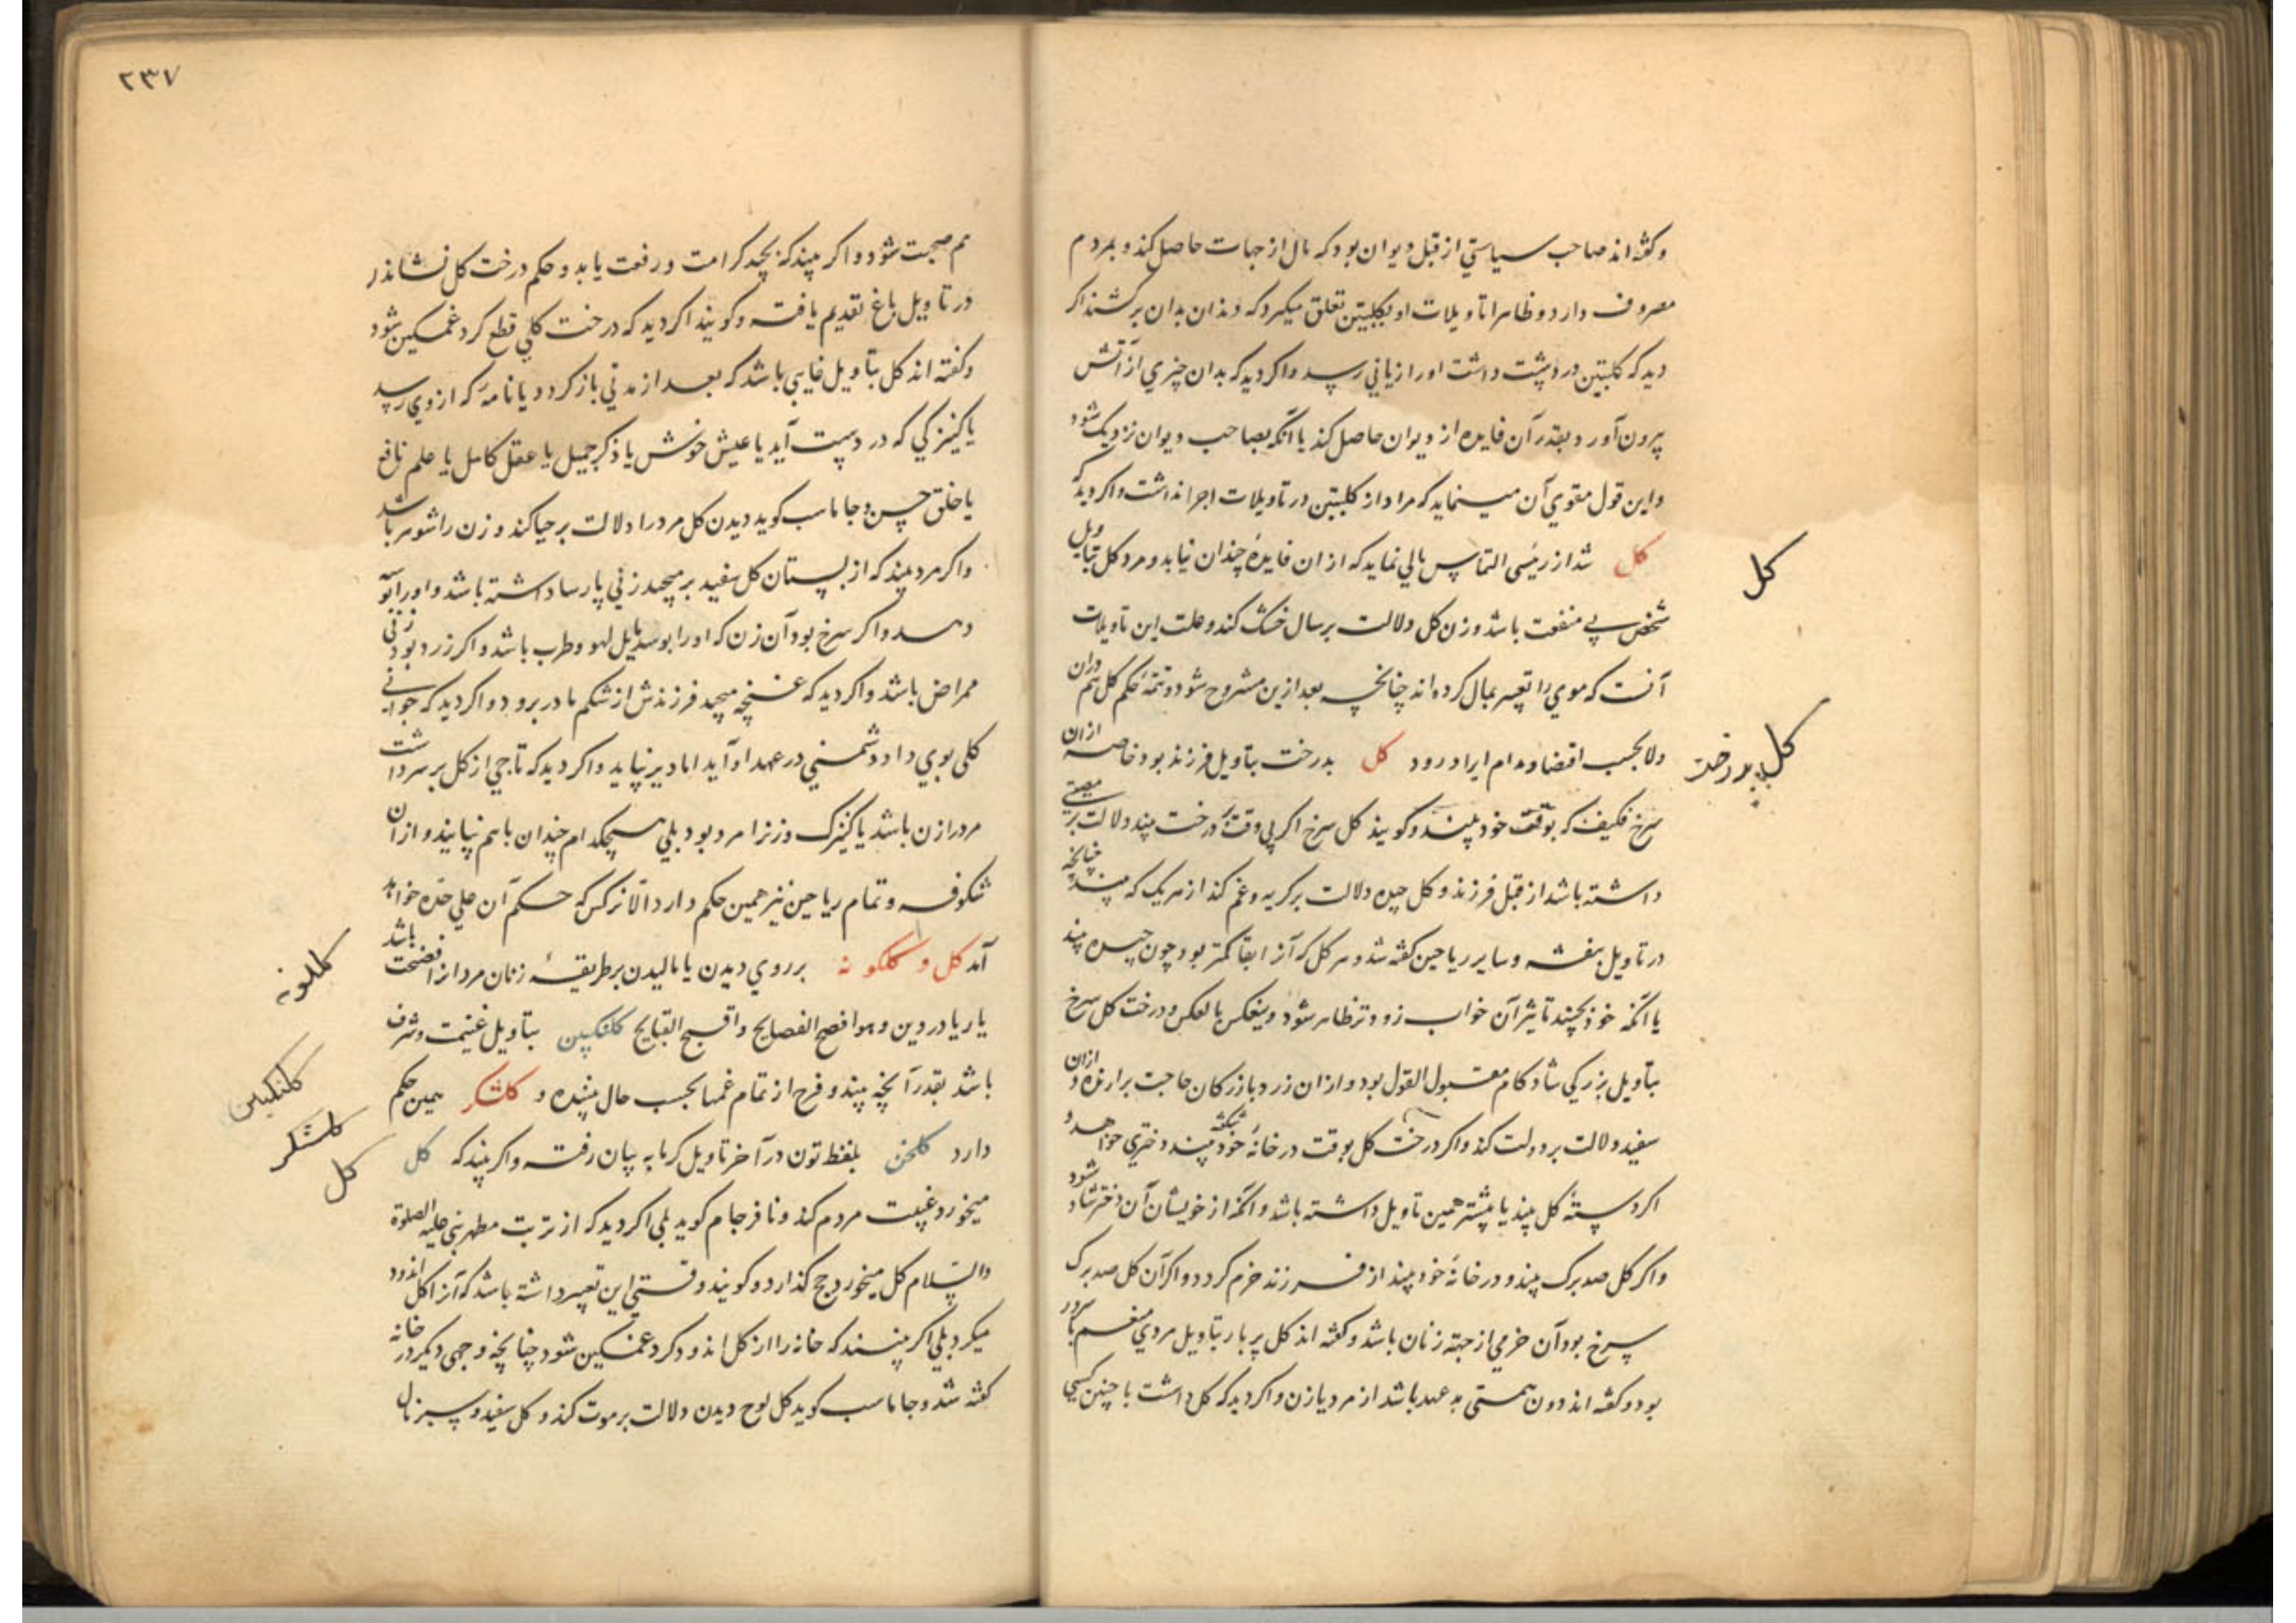 وکفته اند صاحب سیاستي از قبل دیوان بود که مال از جهات حاصل کند و بمردم
مصروف دارد و ظاهرا تاویلات او بکلبتین تعلق میکیرد که دندان بدان برکشند اکر
دید که کلبتین در دست داشت او را زیاني رسد و اکر دید که بدان چیزي از آتش
بیرون آورد بقدر آن فایده از دیوان حاصل کند یا آنکه بصاحب دیوان نزدیک شود
و این قول مقوي آن مینماید که مراد از کلبتین در تاویلات اجرا نداشت و اکر دید که
کل شد از رئیسی التماس مالي نماید که از ان فایدهٔ چندان نیابد و مرد کل بتاویل
شخص بي منفعت باشد و زن کل دلالت بر سال خشک کند و علت این تاویلات
آنست که موي را تعبیر بمال کرده اند چنانچه بعد ازین مشروح شود و تتمهٔ حکم کل هم دران
ولا بحسب اقتضا و مدام ایراد رود کل بدرخت بتاویل فرزند بود خاصه ازان
سرخ فکیف که بوقت خود بینند و کویند کل سرخ اکر بي وقت بر درخت بیند دلالت بر مصیبتي
داشته باشد از قبل فرزند و کل چیده دلالت بر کریه و غم کند از هریک که بیند چنانچه
در تاویل بنفشه و سایر ریاحین کفته شد و هر کل که آنرا بقا کمتر بود چون چیده بیند
یا آنکه خود بچیند تاثیر آن خواب زودتر ظاهر شود و ینعکس بالعکس و درخت کل سرخ
بتاویل بزرکي شادکام مقبول القول بود و ازان زرد بازرکان حاجت برارنده و ازان
سفید دلالت بر دولت کند و اکر درخت کل بوقت در خانهٔ خود شکفته بیند دختري خواهد و
اکر دستهٔ کل بیند یا بیشتر همین تاویل داشته باشد و آنکه از خویشان آن دختر شاد شود
و اکر کل صد برک بیند و در خانهٔ خود بیند از فرزند خرم کردد و اکر آن کل صد برک
سرخ بود آن خرمي از جهة زنان باشد و کفته اند کل پر بار بتاویل مردي
بود و کفته اند دون همتی بد عهد باشد از مرد یا زن و اکر دید که کل داشت با چنین کسي
کل
کل بدرخت
٢٣٧
هم صحبت شود و اکر بیند که بچید کرامت و رفعت یابد و حکم درخت کل نشاندن
در تاویل باغ تقدیم یافته و کویند اکر دید که درخت کلي قطع کرد غمکین شود
و کفته اند کل بتاویل غایبي باشد که بعد از مدتي باز کردد یا نامهٔ که از وي رسد
یا کنیزکي که در دست آید یا عیش خوش یا ذکر جمیل یا عقل کامل یا علم نافع
یا خلق حسن و جاماسب کوید دیدن کل مرد را دلالت بر حیا کند و زن را شوهر باشد
و اکر مرد بیند که از بستان کل سفید برمیچید زني پارسا داشته باشد و او را بوسه
دهد و اکر سرخ بود آن زن که او را بوسد مایل لهو و طرب باشد و اکر زرد بود زني
ممراض باشد و اکر دید که غنچه میچید فرزندش از شکم مادر برود و اکر دید که جواني
کلی بوي داد دشمني در عهد او آید اما دیر نپاید و اکر دید که تاجي از کل بر سر داشت
مرد را زن باشد یا کنیزک و زن را مرد بود بلي هیچکدام چندان با هم نپایند و ازان
شکوفه و تمام ریاحین نیز همین حکم دارد الا نرکس که حکم آن علي حده خواهد
آمد کل و کلکونه بر روي دیدن یا مالیدن بر طریقهٔ زنان مرد را فضیحت باشد
یا ریا در دین و هو افضح الفضایح و اقبح القبایح کلنکبین بتاویل غنیمت و شرف
باشد بقدر آنچه بیند و فرح از تمام غمها بحسب حال بیننده و کلشکر همین حکم
دارد کلخن بلفظ تون در آخر تاویل کرمابه بیان رفته و اکر بیند که کل
میخورد غیبت مردم کند و نافرجام کوید بلي اکر دید که از تربت مطهر نبي علیه الصلوة
والسلام کل میخورد حج کذارد و کویند وقتي این تعبیر داشته باشد که آنرا کل اندود
میکرد بلي اکر بیند که خانه را از کل اندود کرد غمکین شود چنانچه وجهي دیکر در خانه
کفته شد و جاماسب کوید کل لوح دیدن دلالت بر موت کند و کل سفید و سبز مال
کلکونه
کلنکبین
کلشکر
کل